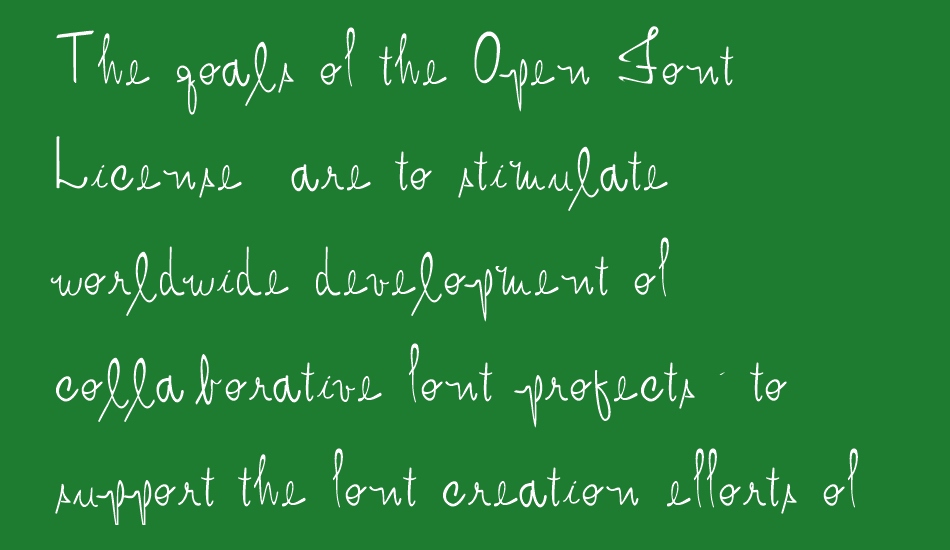 The goals of the Open Font
License are to stimulate
worldwide development of
collaborative font projects - to
support the font creation efforts of